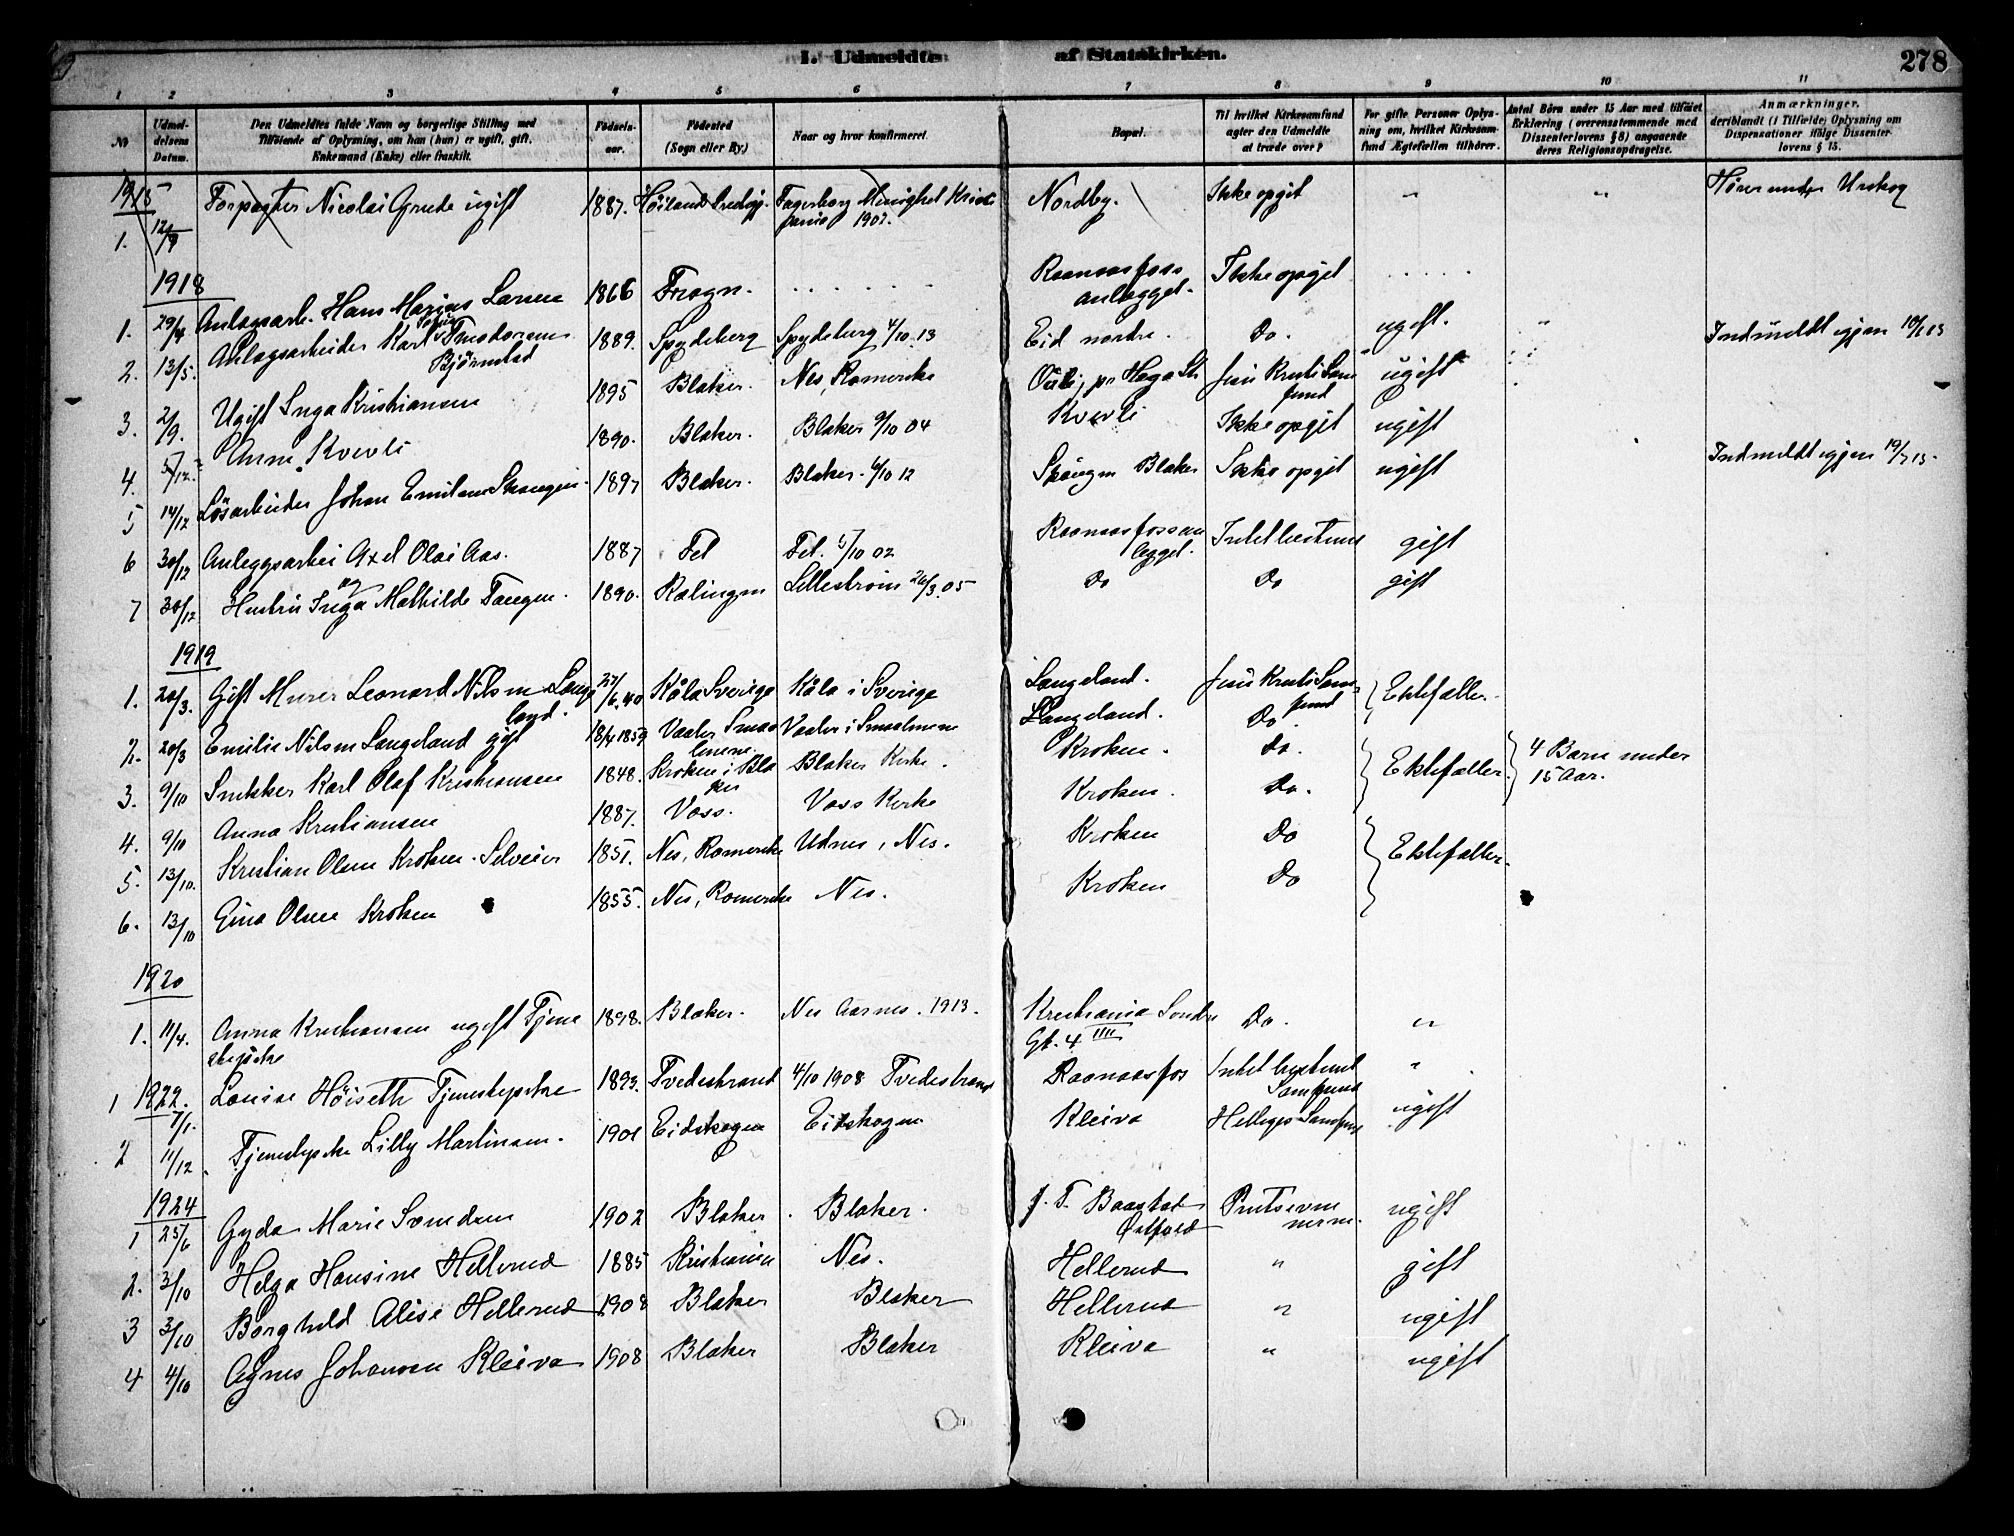 I. Udmeldte af Statskirken. 278
1 2 3 4 5 6 7 8 9 10 11
No
Udmeldelsens Datum.
Den Udmeldtes fulde Navn og borgerlige Stilling med
Tilføiende af Oplysning, om han (hun) er ugift, gift,
Enkemand (Enke) eller fraskilt.
Fødselsaar.
Fødested
(Sogn eller By.)
Naar og hvor konfirmeret.
Bopæl.
Til hvilket Kirkesamfund
agter den Udmeldte
at træde over?
For gifte Personer Oplysning om, hvilket Kirkesamfund Ægtefællen tilhører.
Antal Børn under 15 Aar med tilføiet
Erklæring (overensstemmende med
Dissenterlovens § 8) angaaende
deres Religionsopdragelse.
Anmærkninger,
deriblandt (i Tilfælde) Oplysning om
Dispensationer ifølge Dissenterlovens § 15.
1915
1. 12/9 Forpagter Nicolai Grude ugift 1887. Fagerborg Menighet Kristiania 1902. Nordby. Ikke opgit " " Hører under Urskog
1918
1. 29/4 Anlagsarb. Hans Marius Larsen 1866 Frogn. . . . . . . Raanaasfoss anlægget. Ikke opgit . . . . .
2. 13/5. Anlagsarbeider Karl Bjørnstad 1889. Spydeberg Spydeberg 4/10.13 Eid nordre. Do. ugift. " Indmeldt igjen
3. 2/9. Ugift Inga Kristiansen 1895 Blaker. Nes, Romerike Jesu Kristi Samfund ugift
4. 5/12. Anna Kverli 1890. Blaker. Blaker 9/10 04 Kverli Ikke opgit ugift
5 14/12 Løsarbeider Johan Emil 1897 Blaker. Blaker. 6/10 12 Blaker Ikke opgit ugift Indmeldt igjen
6 30/12 Anleggsarbei Axel Olai Aas. 1887 Fet Fet. 5/10 02 Raanaasfossanlegget. Intet bestemt gift
7 30/12 Hustru Inga Mathilde Tangen. 1890. Rælingen Lillestrøm 26/3.05 Do Do gift
1919
1. 20/3. Gift Murer Leonard Nilsen Langeland. 22/6.40 Köla Sverige Köla i Sverige Langeland. Jesu Kristi Samfund } Ektefæller.
2. 20/3 Emilie Nilsen Langeland gift 18/4 1859 Vaaler Smaalenene. Vaaler i Smaalenene Langeland. Do
3. 9/10 Snekker Karl Olaf Kristiansen 1848. Kroken i Blaker Blaker Kirke. Kroken. Do. } Ektefæller. } 4 Barn under 15 Aar.
4. 9/10 Anna Kristiansen 1887. Voss. Voss Kirke Kroken. Do.
5. 13/10. Kristian Olsen Kroken. Selveier 1851. Nes, Romerike Udnes, Nes. Kroken Do } Ektefæller.
6. 13/10 Olsen Kroken 1855. Nes, Romerike Nes. Kroken Do
1920
1. 11/4. Anna Kristiansen ugift Tjenestepike 1898. Blaker. Nes Aarnes. 1913. Kristiania Gt. 4 IIII Do. "
1922.
1 7/1. Louise Høiseth Tjenestepike 1893. Tvedestrand 4/10 1908 Tvedestrand Raanaasfos Intet bestemt Samfund "
2 11/12 Tjenestepike Lilly Martinsen. 1901 Eidskogen Eidskogen Kleiva Samfund ugift
1924
1 25/6 Gyda Marie Svendsen 1902 Blaker. Blaker. Baastad Østfold Pintsevennerne. ugift
2. 3/10 Helga Hansine Hellerud 1885 Kristiania Nes. Hellerud " gift
3 3/10 Borghild Alise Hellerud 1908 Blaker Blaker Hellerud " ugift
4 4/10 Agnes Johansen Kleiva 1908 Blaker Blaker Kleiva " ugift